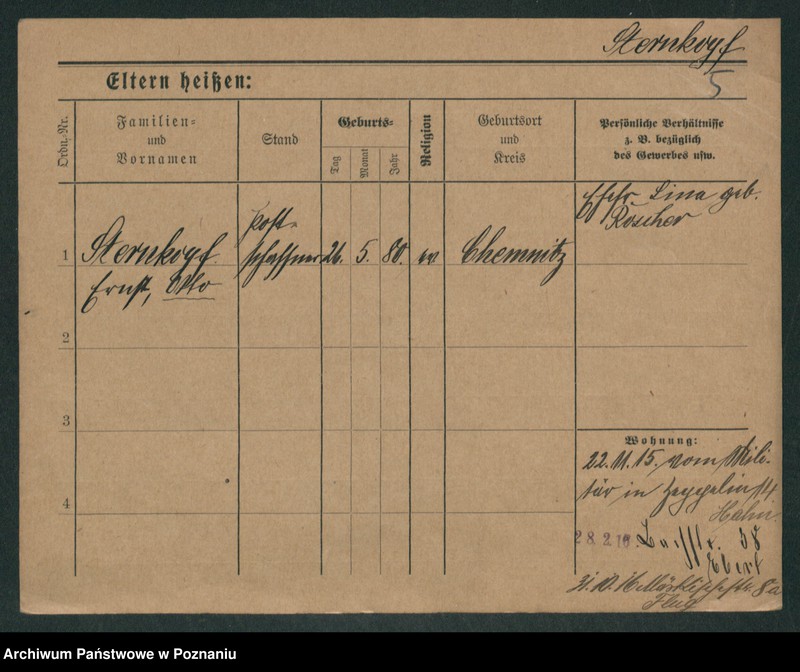 Sternkopf
5
Eltern heißen:
Ordn.-Nr.
Familien-
und
Vornamen
Stand
Geburts-
Tag
Monat
Jahr
Religion
Geburtsort
und
Kreis
Persönliche Verhältnisse
z. B. bezüglich
des Gewerbes usw.
1
Sternkopf
Ernst, Otto
Post-
schaffner
26. 5. 80. ev
Chemnitz
Ehefr. Lina geb.
Roscher
2
3
4
Wohnung:
22. 11. 15. vom Mili-
tär in Zeppelinst
Hahn.
28. 2. 16. 38
Ebert
Märkischestr. 8a
Flug
Archiwum Państwowe w Poznaniu